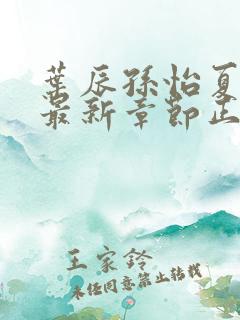 葉辰孫怡夏
最新章節正
王家鈴
未經同意禁止轉載